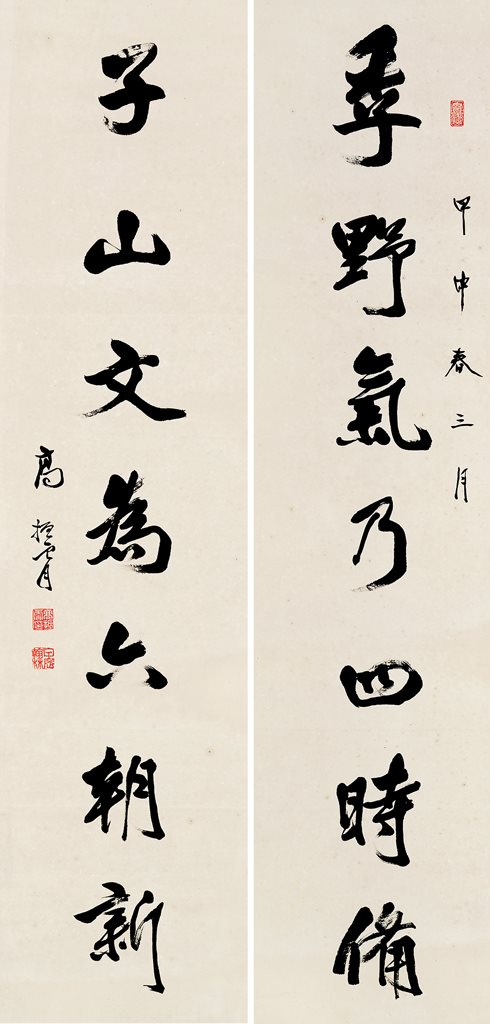 甲申春三月
季野氣乃四時備
子山文為六朝新
高振霄